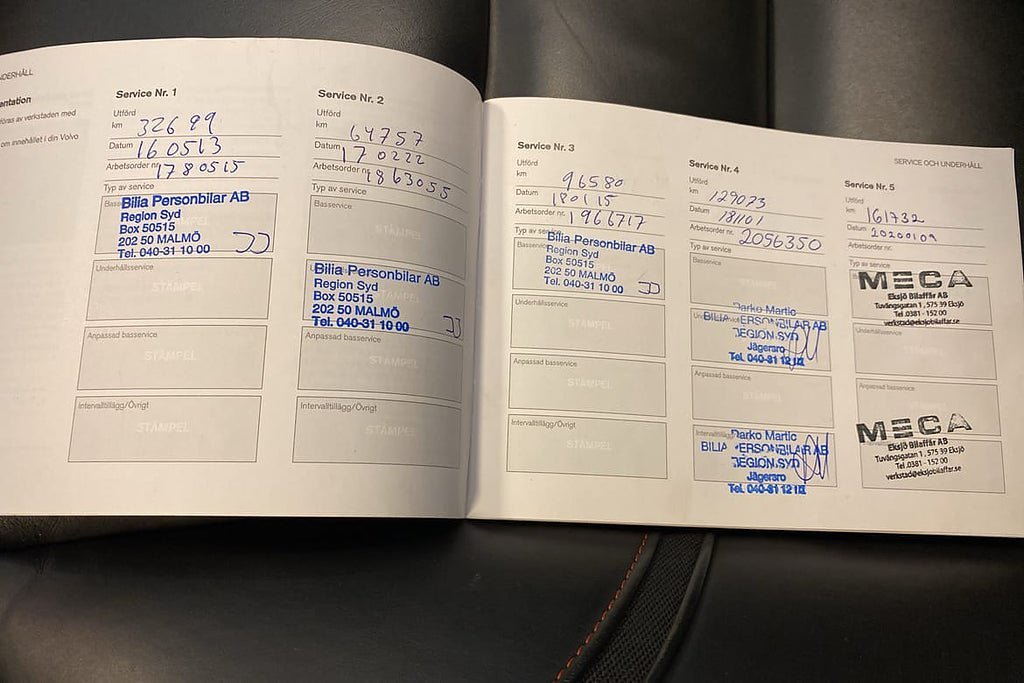 UNDERHÅLL
entation
föras av verkstaden med
om innehållet i din Volvo
Service Nr. 1
Utförd
km 32699
Datum 160513
Arbetsorder nr. 1780515
Typ av service
Bilia Personbilar AB
Region Syd
Box 50515
202 50 MALMÖ
Tel. 040-31 10 00
Underhållsservice
STÄMPEL
Anpassad basservice
STÄMPEL
Intervalltillägg/Övrigt
STÄMPEL
Service Nr. 2
Utförd
km 64757
Datum 170222
Arbetsorder nr. 1863055
Typ av service
Basservice
STÄMPEL
Bilia Personbilar AB
Region Syd
Box 50515
202 50 MALMÖ
Tel. 040-31 10 00
Anpassad basservice
STÄMPEL
Intervalltillägg/Övrigt
STÄMPEL
Service Nr. 3
Utförd
km 96580
Datum 180115
Arbetsorder nr. 1966717
Typ av service
Bilia Personbilar AB
Region Syd
Box 50515
202 50 MALMÖ
Tel. 040-31 10 00
Underhållsservice
STÄMPEL
Anpassad basservice
STÄMPEL
Intervalltillägg/Övrigt
STÄMPEL
SERVICE OCH UNDERHÅLL
Service Nr. 4
Utförd
km 129073
Datum 181101
Arbetsorder nr. 2056350
Typ av service
Basservice
STÄMPEL
Darko Martic
BILIA PERSONBILAR AB
REGION SYD
Jägersro
Tel. 040-31 12 11
Anpassad basservice
STÄMPEL
Darko Martic
BILIA PERSONBILAR AB
REGION SYD
Jägersro
Tel. 040-31 12 11
Service Nr. 5
Utförd
km 161732
Datum 20200109
Arbetsorder nr.
Typ av service
MECA
Eksjö Bilaffär AB
Tuvängsgatan 1, 575 39 Eksjö
Tel .0381 - 152 00
verkstad@eksjobilaffar.se
Underhållsservice
Anpassad basservice
MECA
Eksjö Bilaffär AB
Tuvängsgatan 1, 575 39 Eksjö
Tel .0381 - 152 00
verkstad@eksjobilaffar.se